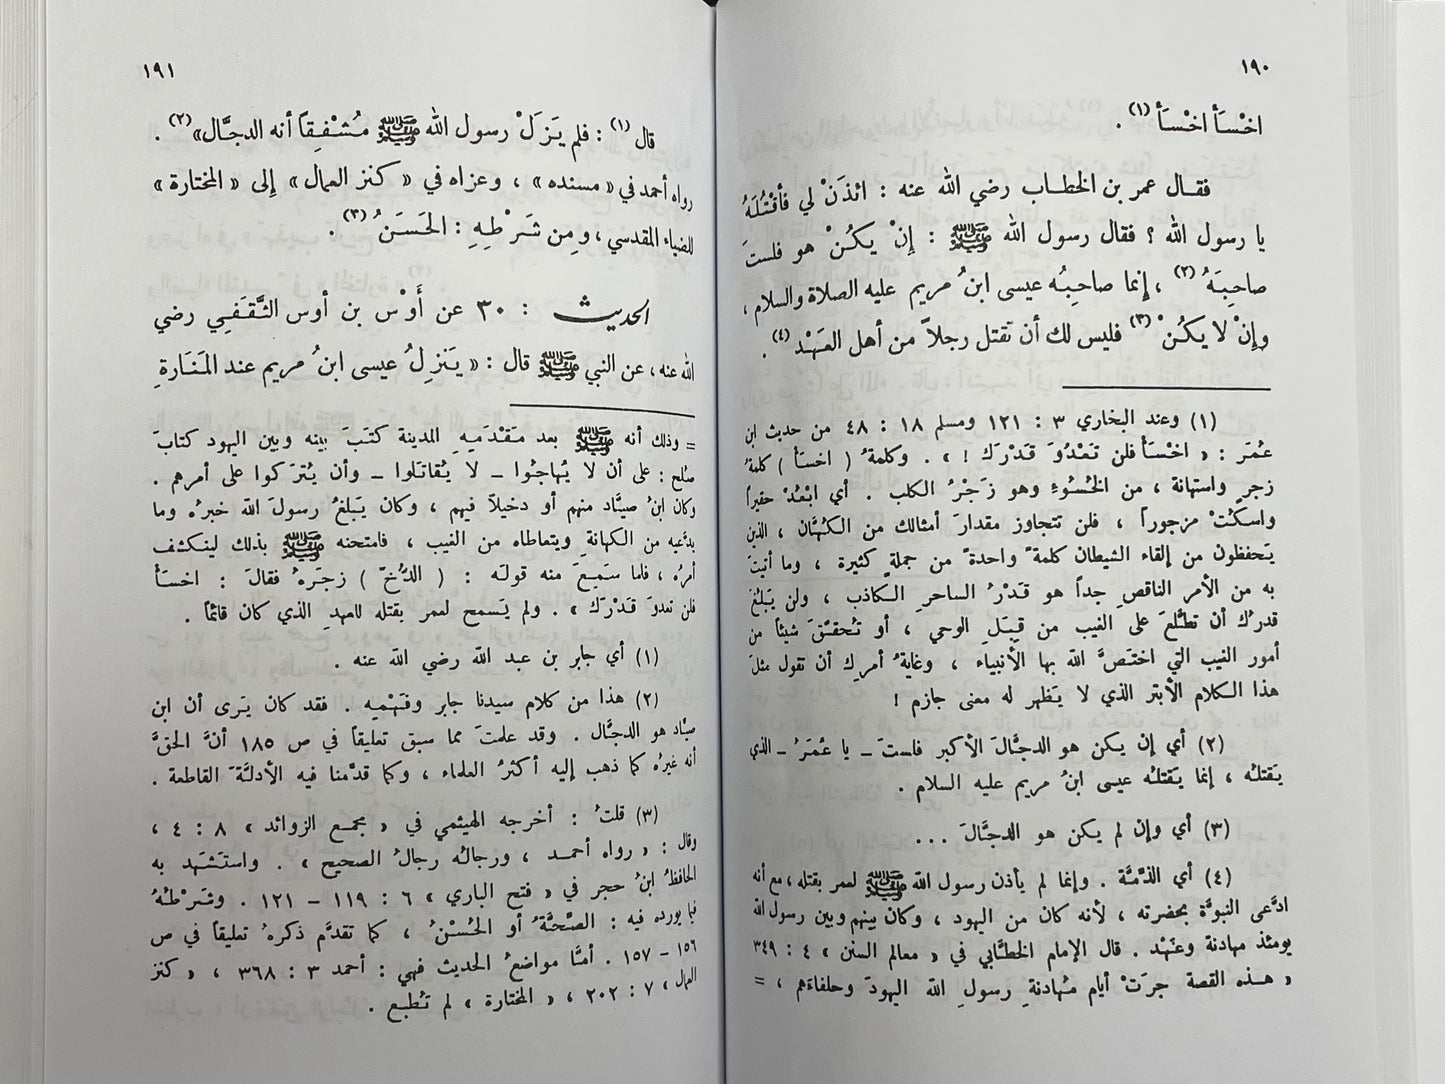 ١٩٠
اخْسَأ اخْسَأ (١) .
فقال عمر بن الخطاب رضي الله عنه : ائذَنْ لي فأقْتُلَهُ
يا رسول الله ؟ فقال رسول الله ﷺ : إنْ يكُنْ هو فلستَ
صاحِبَهُ (٢) ، إنما صاحِبُه عيسى ابنُ مريم عليه الصلاة والسلام ،
وإنْ لا يكُنْ (٣) فليس لك أن تقتل رجلاً من أهل العَهْد (٤) .
(١) وعند البخاري ٣ : ١٢١ ومسلم ١٨ : ٤٨ من حديث ابن
عُمَرَ : « اخْسَأْ فلن تَعْدُوَ قَدْرَك ! » . وكلمةُ ( اخسَأ ) كلمةُ
زجرٍ واستهانة ، من الخُسُوءِ وهو زَجْرُ الكلب . أي ابْعُدْ حقيراً
واسكُتْ مزجوراً ، فلن تتجاوز مقدارَ أمثالك من الكُهَّان ، الذين
يَحفظون من إلقاء الشيطان كلمةً واحدةً من جملةٍ كثيرة ، وما أتيتَ
به من الأمر الناقصِ جداً هو قَدْرُ الساحرِ الكاذب ، ولن يَبلُغَ
قدرُك أن تطَّلعَ على الغيب من قِبَلِ الوحي ، أو تُحقِّقَ شيئاً من
أمور الغيب التي اختَصَّ اللهُ بها الأنبياء ، وغايةُ أمرِك أن تقول مثلَ
هذا الكلام الأبتر الذي لا يَظهر له معنى جازم !
(٢) أي إن يكن هو الدجَّالَ الأكبر فلستَ ـ يا عُمَرُ ـ الذي
يَقتلُه ، إنما يَقتلُه عيسى ابنُ مريم عليه السلام .
(٣) أي وإن لم يكن هو الدجَّالَ ...
(٤) أي الذمَّة . وإنما لم يأذن رسول الله ﷺ لعمر بقتله ، مع أنه
ادَّعى النبوَّة بحضرته ، لأنه كان من اليهود ، وكان بينهم وبين رسول الله
يومئذ مهادنة وعَهْد . قال الإمام الخطَّابي في « معالم السنن » ٤ : ٣٤٩
« هذه القصة جرَتْ أيام مُهادنةِ رسولِ الله اليهودَ وحلفاءَهم ، =
١٩١
قال (١) : فلم يَزَلْ رسول الله ﷺ مُشْفِقاً أنه الدجَّال» (٢) .
رواه أحمد في « مسنده » ، وعزاه في « كنز العمال » إلى « المختارة »
للضياء المقدسي ، ومِن شَرْطِهِ : الحَسَنُ (٣) .
الحديث : ٣٠ عن أَوْس بن أوس الثَّقَفي رضي
الله عنه ، عن النبي ﷺ قال : « يَنزِلُ عيسى ابنُ مريم عند المَنَارةِ
= وذلك أنه ﷺ بعد مَقْدَمِهِ المدينة كتَبَ بينه وبين اليهود كتابَ
صلح : على أن لا يُهاجُوا ـ لا يُقاتَلوا ـ وأن يُترَكوا على أمرهم .
وكان ابنُ صيَّاد منهم أو دخيلاً فيهم ، وكان يَبلغُ رسولَ الله خبرُه وما
يدَّعيه من الكهانةِ ويتعاطاه من الغيب ، فامتحنه ﷺ بذلك لينكشف
أمرُه ، فلما سَمِعَ منه قولَه : ( الدُّخّ ) زجَرَهُ فقالَ : اخسَأْ
فلن تعدوَ قَدْرَك » . ولم يَسمح لعمر بقتله للعهدِ الذي كان قائمًا .
(١) أي جابر بن عبد الله رضي الله عنه .
(٢) هذا من كلام سيدنا جابر وفَهْمِه . فقد كان يَرى أن ابن
صيَّاد هو الدجَّال . وقد علمتَ مما سبق تعليقاً في ص ١٨٥ أنَّ الحقَّ
أنه غيرُه كما ذهب إليه أكثرُ العلماء ، وكما قدَّمنا فيه الأدلَّة القاطعة .
(٣) قلتُ : أخرجه الهيثمي في « مجمع الزوائد » ٨ : ٤ ،
وقال : « رواه أحمد ، ورجالُه رجالُ الصحيح » . واستَشهَد به
الحافظُ ابنُ حجر في « فتح الباري » ٦ : ١١٩ – ١٢١ . وشَرْطُهُ
فيما يورده فيه : الصِّحَّةُ أو الحُسْنُ ، كما تقدَّم ذكرهُ تعليقاً في ص
١٥٦ – ١٥٧ . أمَّا مواضعُ الحديث فهي : أحمد ٣ : ٣٦٨ ، « كنز
العمال » ٧ : ٢٠٢ ، « المختارة » لم تُطبع .